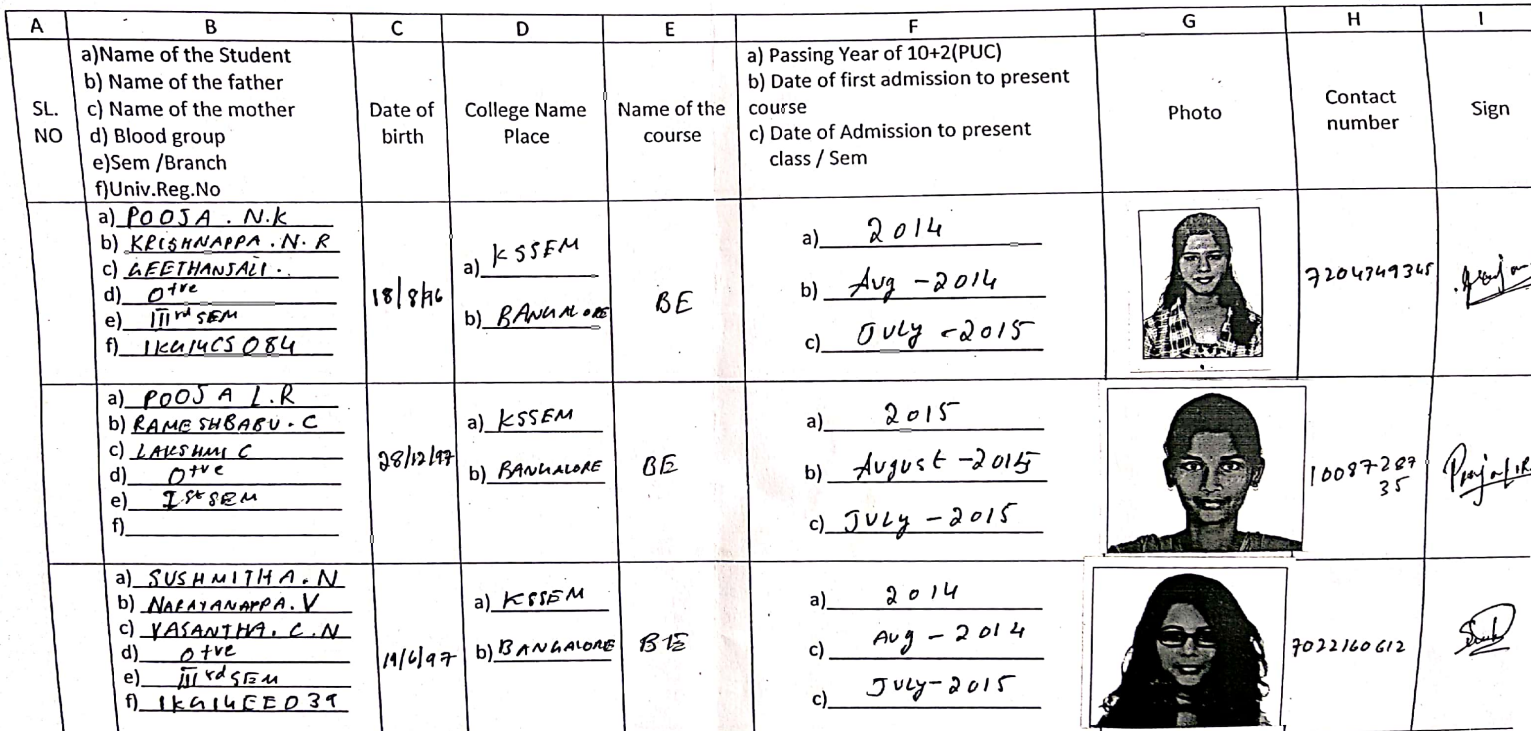 A B C D E F G H I
SL. NO
a)Name of the Student
b) Name of the father
c) Name of the mother
d) Blood group
e)Sem /Branch
f)Univ.Reg.No
Date of birth
College Name Place
Name of the course
a) Passing Year of 10+2(PUC)
b) Date of first admission to present course
c) Date of Admission to present class / Sem
Photo
Contact number
Sign
a) POOJA . N.K
b) KRISHNAPPA . N. R
c) GEETHANJALI .
d) O+ve
e) IIIrd SEM
f) 1KG14CS084
18/8/96
a) KSSEM
b) BANGALORE
BE
a) 2014
b) Aug - 2014
c) JULY - 2015
7204349345
a) POOJA L.R
b) RAMESHBABU . C
c) LAKSHMI C
d) O+ve
e) Ist SEM
f)
28/12/97
a) KSSEM
b) BANGALORE
BE
a) 2015
b) August - 2015
c) JULY - 2015
10087287
35
Pooja L R
a) SUSHMITHA . N
b) NARAYANAPPA . V
c) VASANTHA . C . N
d) O+ve
e) IIIrd SEM
f) 1KG14EE039
a) KSSEM
b) BANGALORE
BE
a) 2014
c) Aug - 2014
c) JULY - 2015
7022160612